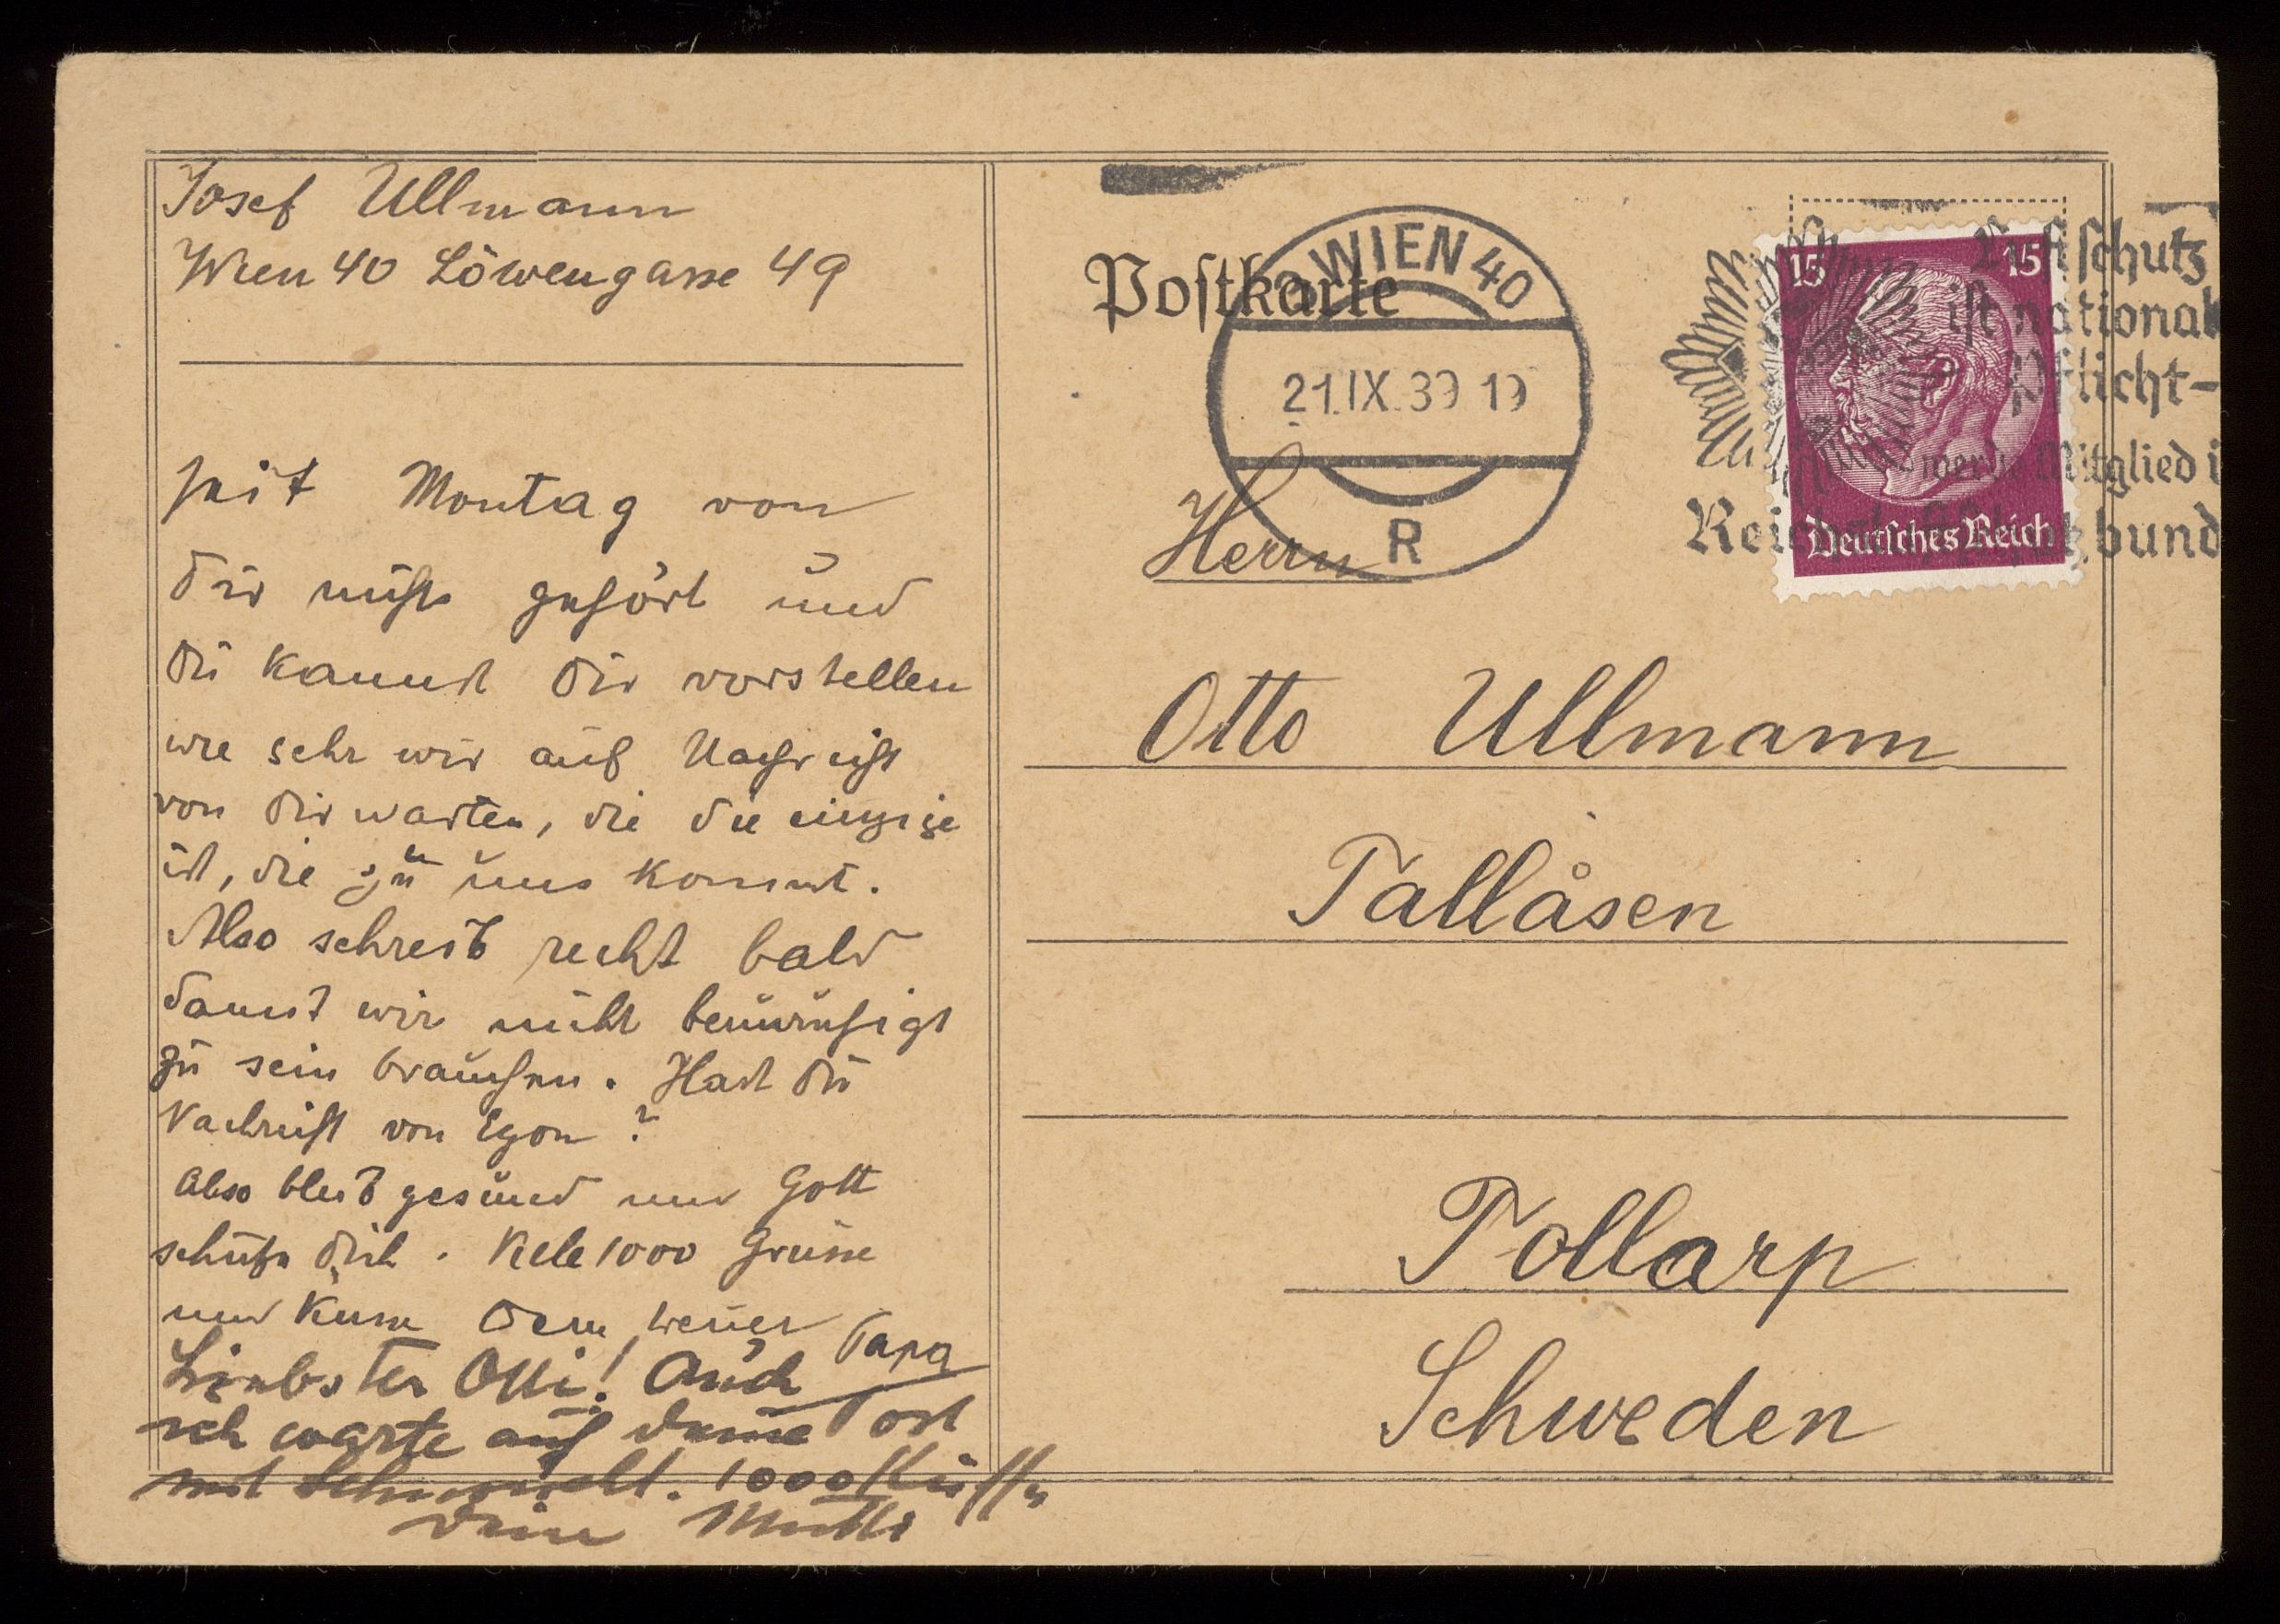 Josef Ullmann
Wien 40 Löwengasse 49
seit Montag von
dir nichts gehört und
du kannst dir vorstellen
wie sehr wir auf Nachricht
von dir warten, die die einzige
ist, die zu uns kommt.
Also schreib recht bald
damit wir nicht beunruhigt
zu sein brauchen. Hast du
Nachricht von Egon?
Also bleib gesund und Gott
schütze dich. Viele 1000 Grüsse
und Küsse Dein Papa
Liebster Otti! Auch
ich warte auf deine Post
mit Sehnsucht. 1000 Küsse
deine Mutti
Postkarte
WIEN 40
21.IX.39 19
R
15 15
Deutsches Reich
Luftschutz
ist national
Pflicht-
werde Mitglied i
Reichsluftschutzbund
Herrn
Otto Ullmann
Tallåsen
Tollarp
Schweden